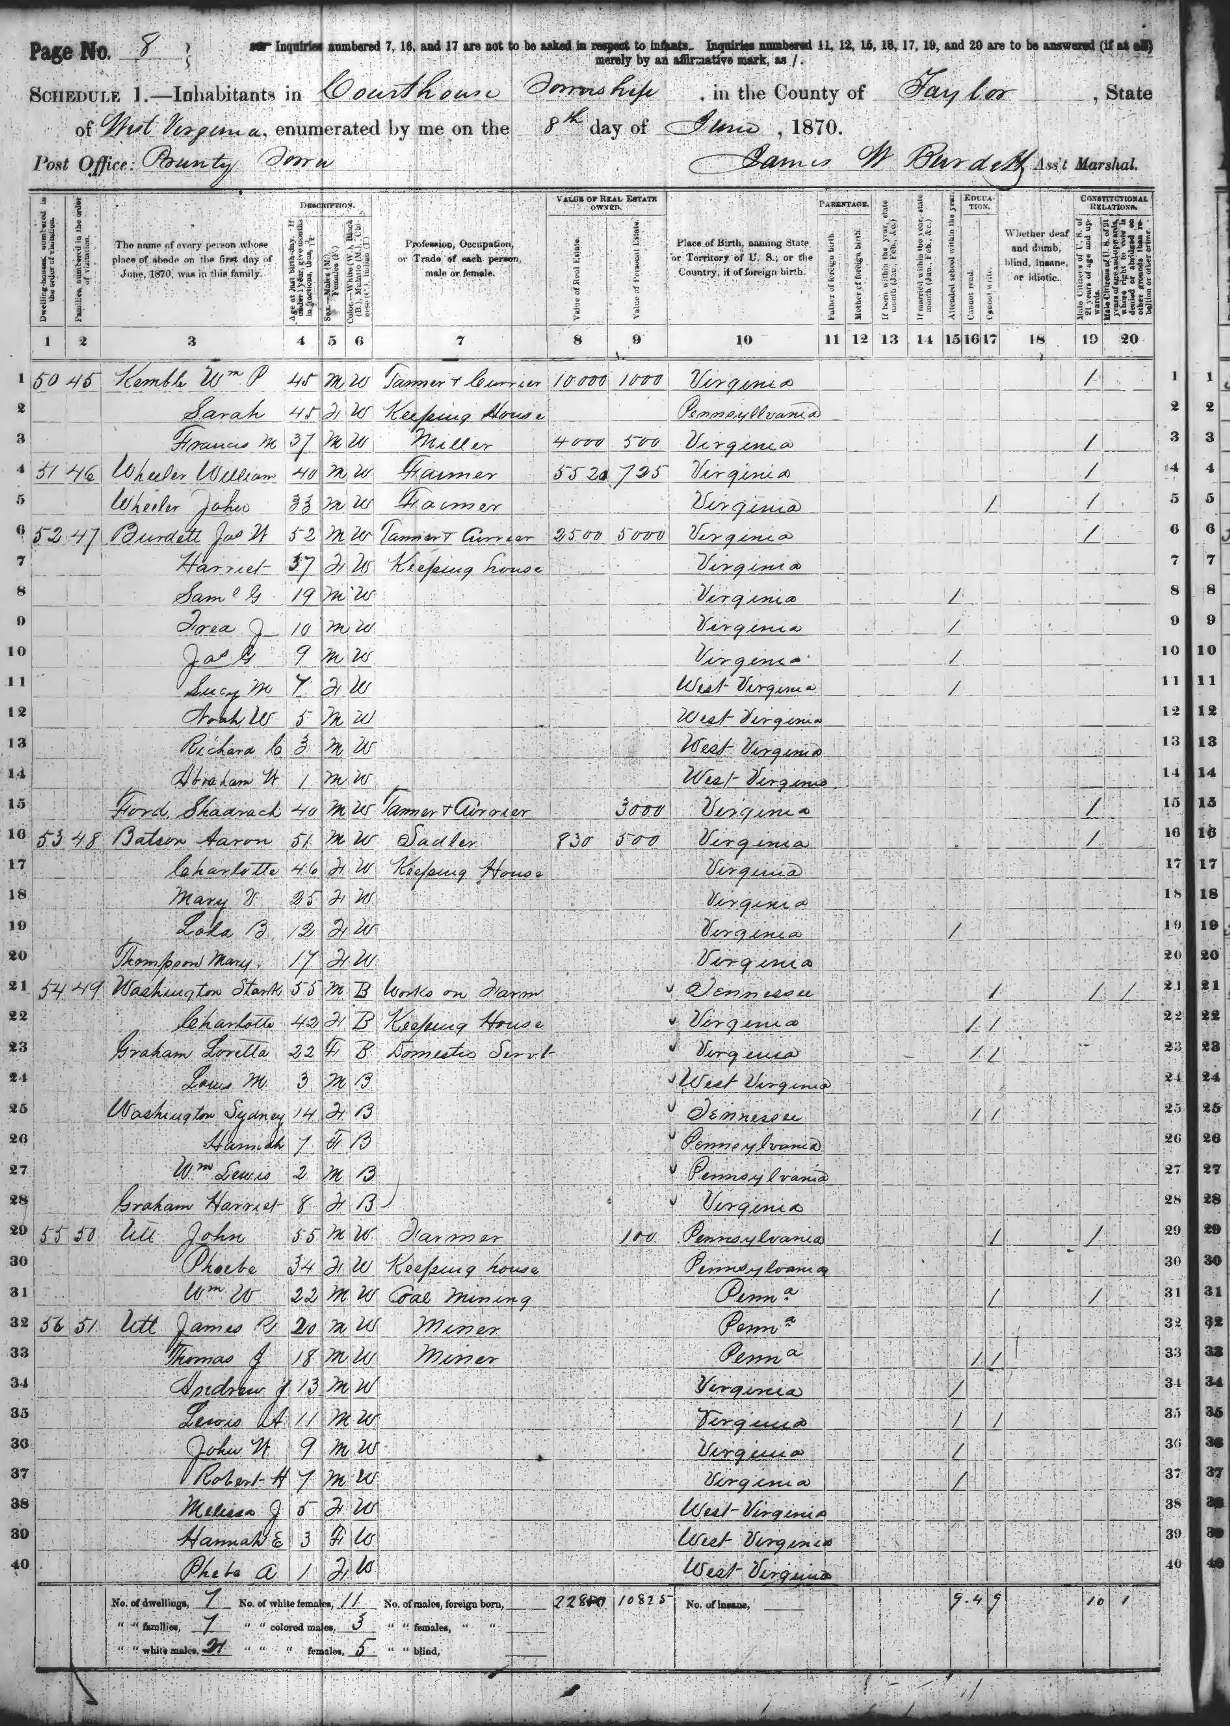 Page No. 8
Inquiries numbered 7, 16, and 17 are not to be asked in respect to infants. Inquiries numbered 11, 12, 15, 16, 17, 19, and 20 are to be answered (if at all)
merely by an affirmative mark, as /.
SCHEDULE 1.—Inhabitants in Courthouse Township, in the County of Taylor, State
of West Virginia, enumerated by me on the 8th day of June, 1870.
Post Office: Prunty Town James W Burdett, Ass't Marshal.
DESCRIPTION. VALUE OF REAL ESTATE OWNED. PARENTAGE. EDUCATION. CONSTITUTIONAL RELATIONS.
Dwelling-houses, numbered in the order of visitation.
Families, numbered in the order of visitation.
The name of every person whose place of abode on the first day of June, 1870, was in this family.
Age at last birth-day. If under 1 year, give months in fractions, thus,
Sex.—Males (M.), Females (F.)
Color.—White (W.), Black (B.), Mulatto (M.), Chinese (C.), Indian (I.)
Profession, Occupation, or Trade of each person, male or female.
Value of Real Estate.
Value of Personal Estate.
Place of Birth, naming State or Territory of U. S.; or the Country, if of foreign birth.
Father of foreign birth.
Mother of foreign birth.
If born within the year, state month (Jan., Feb., &c.)
If married within the year, state month (Jan., Feb., &c.)
Attended school within the year.
Cannot read.
Cannot write.
Whether deaf and dumb, blind, insane, or idiotic.
Male Citizens of U. S. of 21 years of age and upwards.
Male Citizens of U. S. of 21 years of age and upwards, whose right to vote is denied or abridged on other grounds than rebellion or other crime.
1 2 3 4 5 6 7 8 9 10 11 12 13 14 15 16 17 18 19 20
1 50 45 Kemble Wm P 45 M W Tanner + Currier 10000 1000 Virginia / 1 1
2 Sarah 45 F W Keeping House Pennsyllvania 2 2
3 Francis M 37 M W Miller 4000 500 Virginia / 3 3
4 51 46 Wheeler William 40 M W Farmer 5520 725 Virginia / 4 4
5 Wheeler John 33 M W Farmer Virginia / / 5 5
6 52 47 Burdett Jas W 52 M W Tanner + Currier 2500 5000 Virginia / 6 6
7 Harriet 37 F W Keeping house Virginia 7 7
8 Saml G 19 M W Virginia / 8 8
9 J 10 M W Virginia / 9 9
10 Jas G 9 M W Virginia / 10 10
11 Lucy M 7 F W West Virginia / 11 11
12 Noah W 5 M W West Virginia 12 12
13 Richard C 3 M W West Virginia 13 13
14 Abraham W 1 M W West Virginia 14 14
15 Ford, Shadrach 40 M W Tanner + Currier 3000 Virginia / 15 15
16 53 48 Batson Aaron 51 M W Sadler 830 500 Virginia / 16 16
17 Charlotte 46 F W Keeping House Virginia 17 17
18 Mary V 25 F W Virginia 18 18
19 Lola B. 12 F W Virginia / 19 19
20 Thompson Mary 17 F W Virginia 20 20
21 54 49 Washington Stark 55 M B Works on Farm Tennessee / / / 21 21
22 Charlotte 42 F B Keeping House Virginia / / 22 22
23 Graham Loretta 22 F B Domestic Servt Virginia / / 23 23
24 Lewis M 3 M B West Virginia 24 24
25 Washington Sydney 14 F B Tennessee / / 25 25
26 Hannah 7 F B Pennsylvania 26 26
27 Wm Lewis 2 M B Pennsylvania 27 27
28 Graham Harriet 8 F B Virginia 28 28
29 55 50 Utt John 55 M W Farmer 100 Pennsylvania / / 29 29
30 Phoebe 34 F W Keeping house Pennsylvania 30 30
31 Wm W 22 M W Coal Mining Penna / / 31 31
32 56 51 Utt James 20 M W Miner Penna 32 32
33 Thomas J 18 M W Miner Penna / / 33 33
34 Andrew J 13 M W Virginia / 34 34
35 Lewis A 11 M W Virginia / / 35 35
36 John W 9 M W Virginia / 36 36
37 Robert H 7 M W Virginia / 37 37
38 Melissa J 5 F W West Virginia 38 38
39 Hannah E 3 F W West Virginia 39 39
40 Phebe A 1 F W West Virginia 40 40
No. of dwellings, 7 No. of white females, 11 No. of males, foreign born, 22850 10825 No. of insane, 9 4 9 10 1
" " families, 7 " " colored males, 3 " " females, " "
" " white males, 21 " " " females, 5 " " blind,